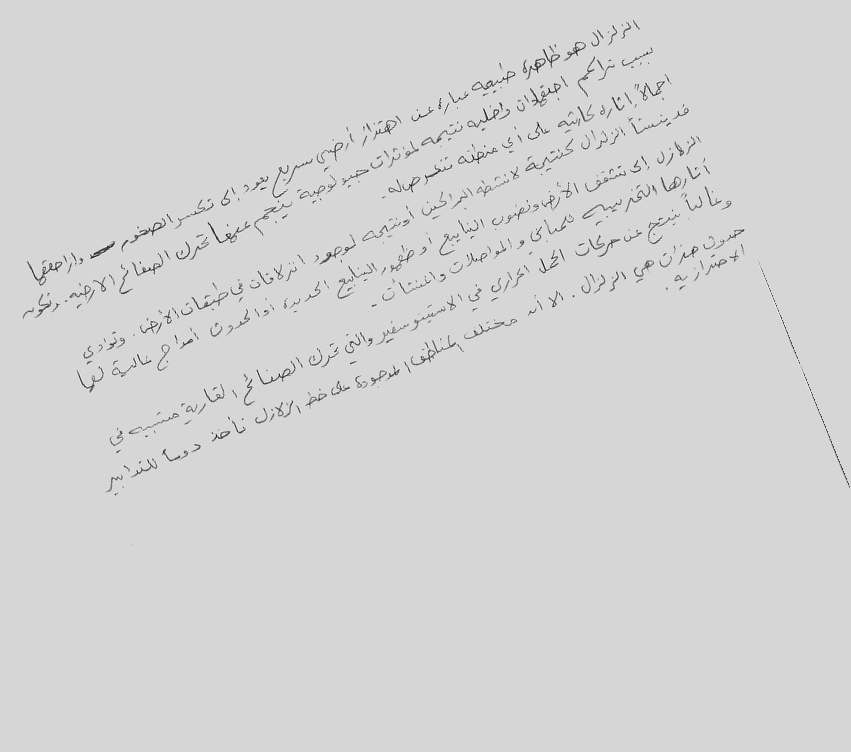 الزلزال هو ظاهرة طبيعيه عبارة عن اهتزاز أرضي سريع يعود إلى تكسر الصخور وازاحتها
بسبب تراكم اجتهادات داخليه نتيجه لمؤثرات جيولوجية ينجم عنها تحرك الصفائح الارضيه. وتكون
اجمالاً إثاره كارثيه على أي منطقه تتعرض له.
قد ينشأ الزلزال كنتيجة لانشطه البراكين أو نتيجه لوجود انزلاقات في طبقات الأرض. وتؤدي
الزلازل إلى تشقق الأرض ونضوب الينابيع أو ظهور الينابيع الجديده أو الحدوث أمواج عالية لها
أثارها التخريبيه للمباني والمواصلات والمنشأت.
وغالباً ينتج عن حركات الحمل الحراري في الاستينوسفير والتي تحرك الصفائح القارية متسببه في
حدوث هزات هي الزلزال. الا أن مختلف المناطق الموجودة على خط الزلازل تأخذ دوماً للتدابير
الاحترازيه.